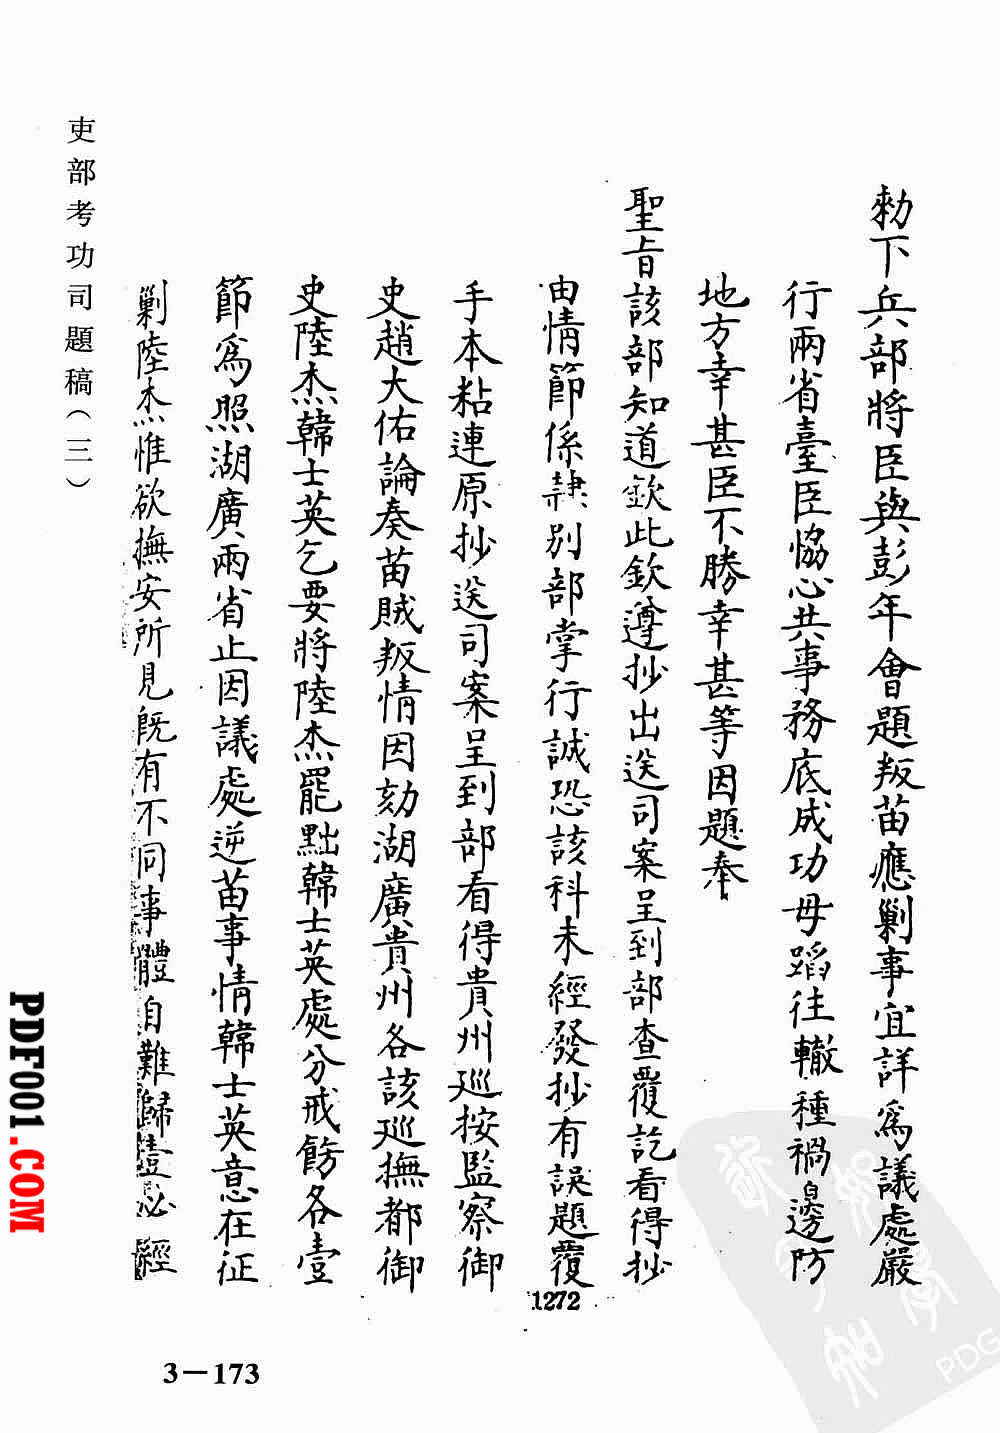 勑下兵部將臣與彭年會題叛苗應剿事宜詳爲議處嚴
行兩省臺臣恊心共事務底成功毋蹈往轍種禍邊防
地方幸甚臣不勝幸甚等因題奉
聖旨該部知道欽此欽遵抄出送司案呈到部查覆訖看得抄
由情節係隸別部掌行誠恐該科未經發抄有誤題覆
手本粘連原抄送司案呈到部看得貴州巡按監察御
史趙大佑論奏苗賊叛情因劾湖廣貴州各該巡撫都御
史陸杰韓士英乞要將陸杰罷黜韓士英處分戒飭各壹
節爲照湖廣兩省止因議處逆苗事情韓士英意在征
剿陸杰惟欲撫安所見既有不同事體自難歸壹必經
吏部考功司題稿（三）
1272
3—173
PDF001.COM
PDG